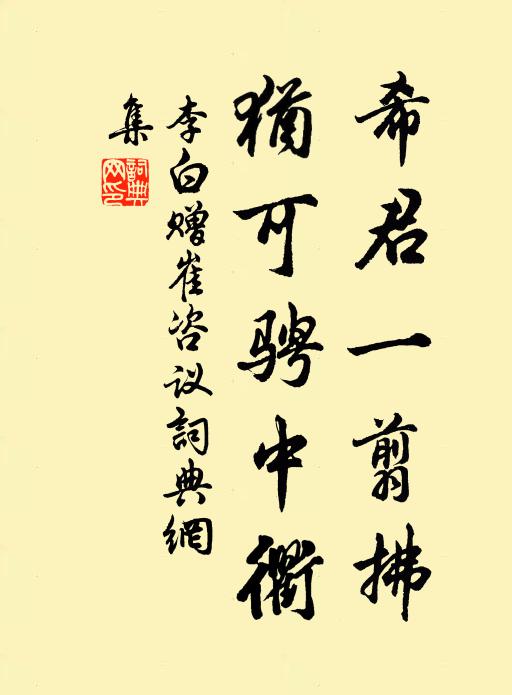 希君一翦拂
猶可骋中衢
李白赠崔咨议詞典網
集
詞典
网印